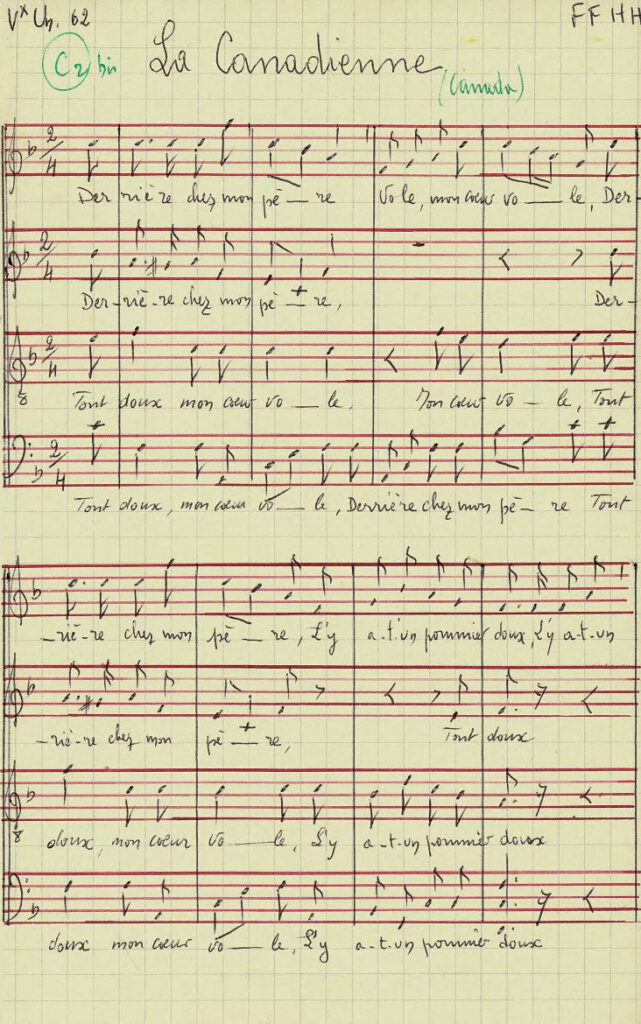 Vx Un. 62
FF HH
C2 bis
La Canadienne
(Canada)
Der rière chez mon pè — re Vole, mon cœur vo — le, Der-
Der-riè-re chez mon pè — re, Der-
Tout doux mon cœur vo — le. Mon cœur vo — le, Tout
Tout doux, mon cœur vo — le, Derrière chez mon pè — re Tout
-riè-re chez mon pè — re, L'y a-t-un pommier doux, L'y a-t-un
-riè-re chez mon pè — re, Tout doux
doux, mon cœur vo — le, L'y a-t-un pommier doux
doux mon cœur vo — le, L'y a-t-un pommier doux